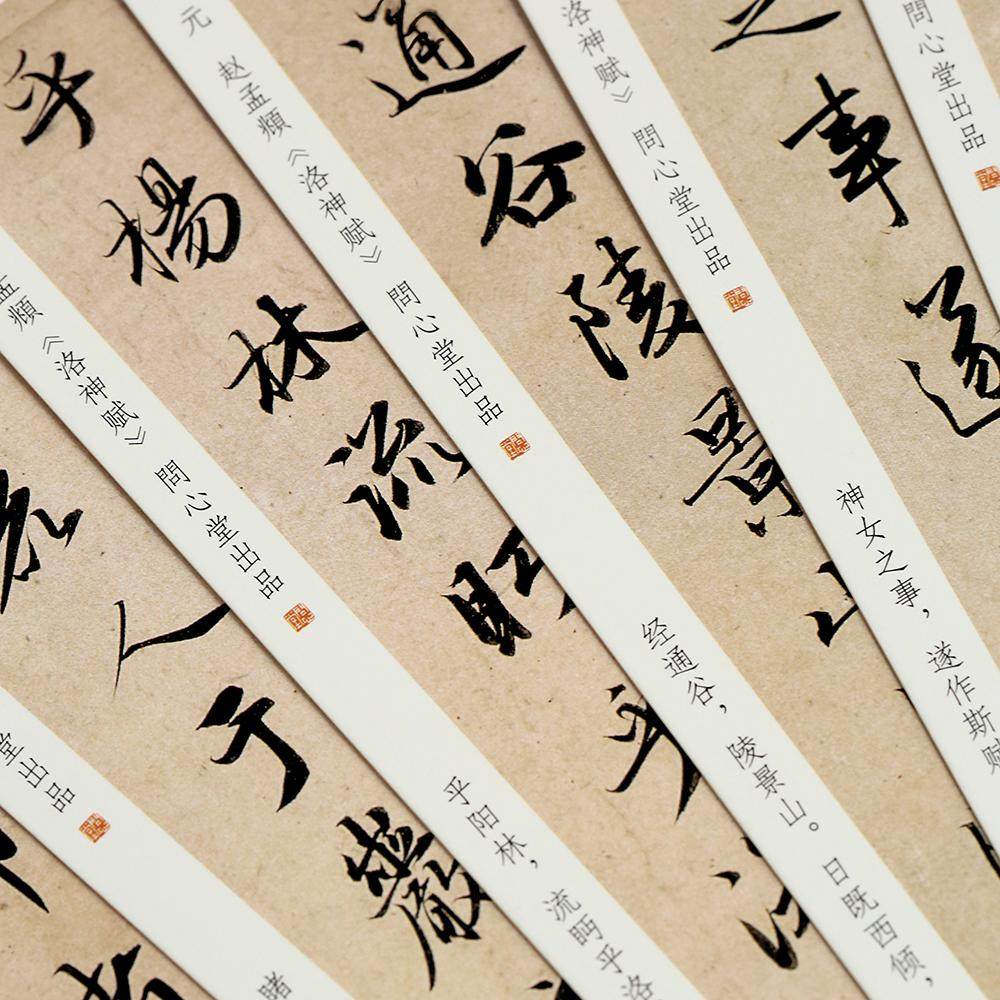 問心堂出品
之事遂
洛神赋》 問心堂出品
神女之事，遂作斯赋
通谷陵景山
元 赵孟頫《洛神赋》 問心堂出品
经通谷，陵景山。日既西倾，
乎楊林流眄乎洛
孟頫《洛神赋》 問心堂出品
乎阳林，流眄乎洛
人于巖
堂出品
睹